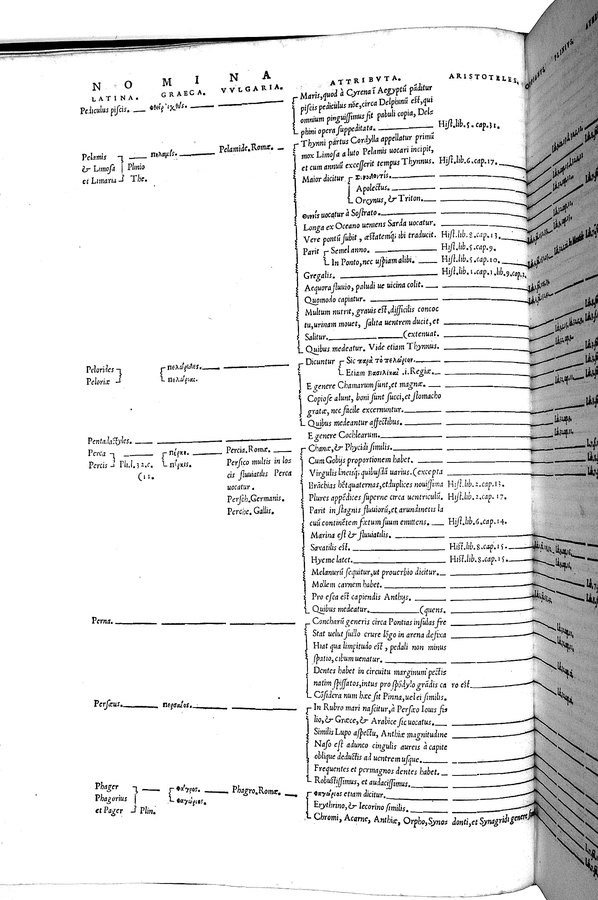 NOMINA
LATINA. GRAECA. VVLGARIA. ATTRIBVTA. ARISTOTELES.
Pediculus piscis. Maris, quod à Cyrena ĩ Aegyptũ pãditur
piscis pediculus nõe, circa Delpinũ est, qui
omnium pinguissimus fit pabuli copia, Del=
phini opera suppeditata. Hist. lib. 5. cap. 31.
Thynni partus Cordylla appellatur primũ
Pelamis πηλαμὶς. Pelamide. Romæ. mox Limosa a luto Pelamis uocari incipit,
& Limosa Plinio et cum annũ excesserit tempus Thynnus. Hist. lib. 6. cap. 17.
et Limaria The. Maior dicitur
Apolectus.
Orcynus, & Triton.
uocatur à Sostrato.
Longa ex Oceano ueniens Sarda uocatur.
Vere pontũ subit, æstatemq; ibi traducit. Hist. lib. 8. cap. 13.
Parit Semel anno. Hist. lib. 5. cap. 9.
In Ponto, nec uspiam alibi. Hist. lib. 5. cap. 10.
Gregalis. Hist. lib. 1. cap. 1. lib. 9. cap. 2.
Aequora fluuio, paludi ue uicina colit.
Quomodo capiatur.
Multum nutrit, grauis est, difficilis concoc
tu, urinam mouet, salita uentrem ducit, et
Salitur. (extenuat.
Quibus medeatur. Vide etiam Thynnus.
Pelorides πελωρίδες. Dicuntur Sic παρὰ τὸ πελώριον.
Peloriæ πελωρίαι. Etiam βασιλικαὶ .i. Regiæ.
E genere Chamarum sunt, et magnæ.
Copiose alunt, boni sunt succi, et stomacho
gratæ, nec facile excernuntur.
Quibus medeantur affectibus.
Pentadactyles. E genere Cochlearum.
Perca πέρκη. Percia. Romæ. Chanæ, & Phycidi similis.
Percis Pli. l. 32. c. πέρκις. Persico multis in lo= Cum Gobijs proportionem habet.
(12. cis fluuiatilis Perca Virgulis lineisq; quibusdã uarius. (excepta
uocatur. Brãchias hẽt quaternas, et duplices nouissima Hist. lib. 2. cap. 13.
Persch. Germanis. Plures appẽdices superne circa uentriculũ. Hist. lib. 2. cap. 17.
Perche. Gallis. Parit in stagnis fluuiorũ, et arundinetis la
cuũ continẽtem fœtum suum emittens. Hist. lib. 6. cap. 14.
Marina est & fluuiatilis.
Saxatilis est. Hist. lib. 8. cap. 15.
Hyeme latet. Hist. lib. 8. cap. 15.
Melanurũ sequitur, ut prouerbio dicitur.
Mollem carnem habet.
Pro esca est capiendis Anthijs.
Quibus medeatur. (quens.
Perna. Concharũ generis circa Pontias insulas fre
Stat uelut suillo crure lõgo in arena defixa
Hiat qua limpitudo est, pedali non minus
spatio, cibum uenatur.
Dentes habet in circuitu marginum pectis
natim spissatos, intus pro spõdylo grãdis ca ro est.
Cõsidera num hæc sit Pinna, uel ei similis.
Perseus. περσεὺς. In Rubro mari nascitur, à Persæo Iouis fi
lio, & Græce, & Arabice sic uocatus.
Similis Lupo aspectu, Anthiæ magnitudine
Naso est adunco cingulis aureis à capite
oblique deductis ad uentrem usque.
Frequentes et permagnos dentes habet.
Robustissimus, et audacissimus.
Phager φάγρος. Phagro. Romæ. φαγώριος etiam dicitur.
Phagorius φαγώριος. Erythrino, & Iecorino similis.
et Pager Plin. Chromi, Acarne, Anthiæ, Orpho, Synodonti, et Synagridi genere